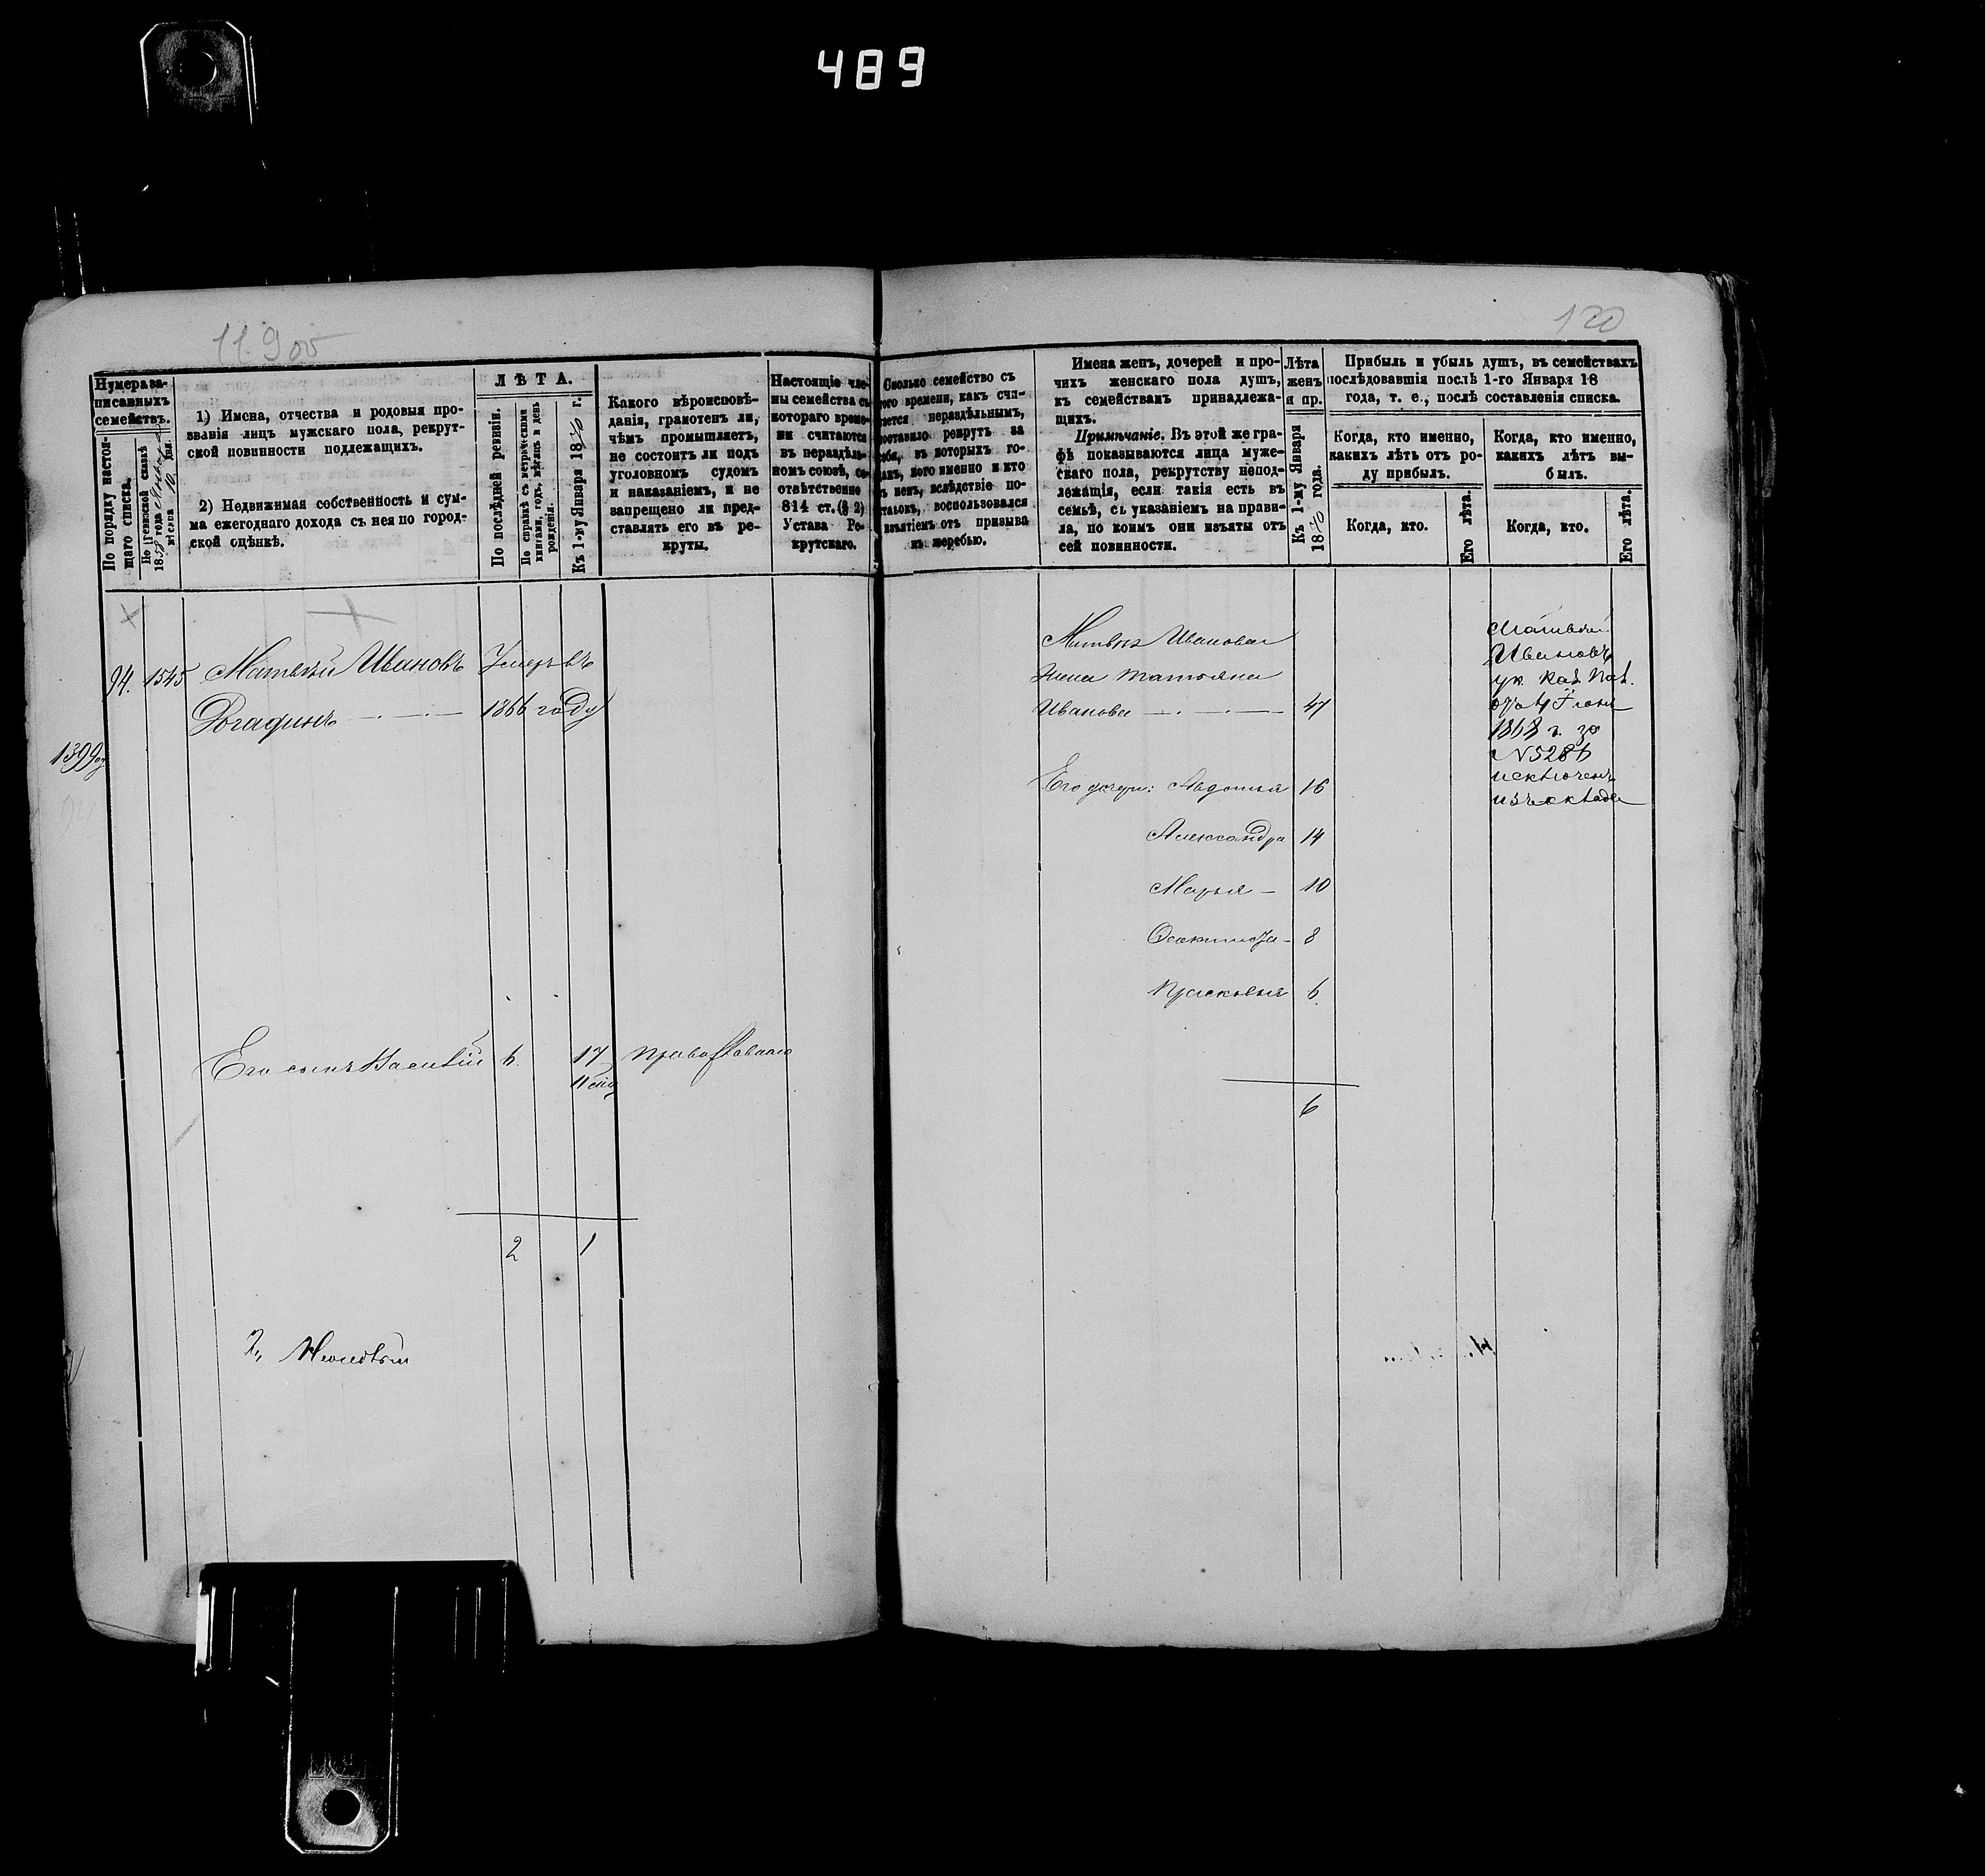 489
120
Нумера записанныхъ семействъ.
По порядку настоящаго списка.
По ревизской сказкѣ 1858 года Января мѣсяца 10 дня.
1) Имена, отчества и родовыя прозванія лицъ мужскаго пола, рекрутской повинности подлежащихъ.
2) Недвижимая собственность и сумма ежегоднаго дохода съ нея по городской оцѣнкѣ.
ЛѢТА.
По послѣдней ревизіи.
По справкѣ съ метрическими книгами, годъ, мѣсяцъ и день рожденія.
Къ 1-му Января 1870 г.
Какого вѣроисповѣданія, грамотенъ ли, чѣмъ промышляетъ, не состоитъ ли подъ уголовномъ судомъ и наказаніемъ, и не запрещено ли представлять его въ рекруты.
Настоящіе члены семейства съ котораго времени считаются въ нераздѣльномъ союзѣ, соотвѣтственно 814 ст. (§ 2) Устава Рекрутскаго.
Сколько семейство съ того времени, какъ считается нераздѣльнымъ, поставило рекрутъ за себя, въ которыхъ годахъ, кого именно и кто въ немъ, вслѣдствіе поставокъ, воспользовался изъятіемъ отъ призыва къ жеребью.
Имена женъ, дочерей и прочихъ женскаго пола душъ, къ семействамъ принадлежащихъ.
Примѣчаніе. Въ этой же графѣ показываются лица мужескаго пола, рекрутству неподлежащія, если такія есть въ семьѣ, съ указаніемъ на правила, по коимъ они изъяты отъ сей повинности.
Лѣта женъ и пр.
Къ 1-му Января 1870 года.
Прибыль и убыль душъ, въ семействахъ послѣдовавшія послѣ 1-го Января 18 года, т. е., послѣ составленія списка.
Когда, кто именно, какихъ лѣтъ отъ роду прибылъ.
Когда, кто.
Его лѣта.
Когда, кто именно, какихъ лѣтъ выбылъ.
Когда, кто.
Его лѣта.
94. 1545 Матвѣй Ивановъ Умеръ въ
Рогадинъ 1866 году
Его сынъ Василій 6. 17 Православнаго
2 1
Матвѣя Иванова
жена Татьяна
Иванова 47
Его дочери: Авдотья 16
Александра 14
Марья 10
Феоктиста 8
Прасковья 6.
6
Матвѣй
Ивановъ
ук. Каз. Пал.
отъ 4 Іюня
1868 г. за
№ 5286
исключенъ
изъ оклада